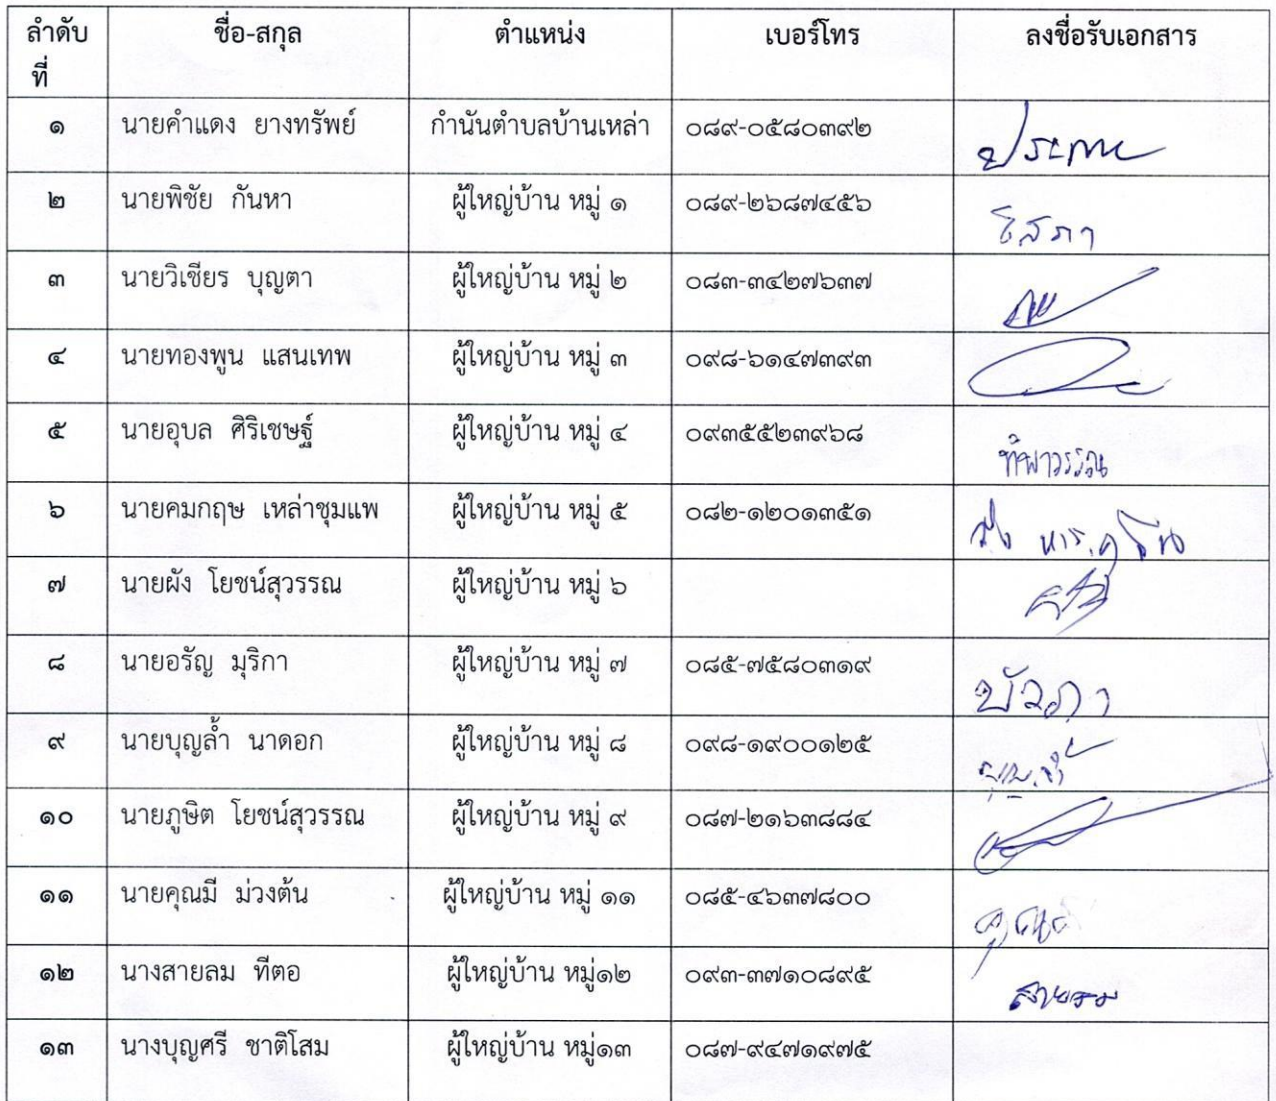 ลำดับที่ ชื่อ-สกุล ตำแหน่ง เบอร์โทร ลงชื่อรับเอกสาร
๑ นายคำแดง ยางทรัพย์ กำนันตำบลบ้านเหล่า ๐๘๙-๐๕๘๐๓๙๒
๒ นายพิชัย กันหา ผู้ใหญ่บ้าน หมู่ ๑ ๐๘๙-๒๖๘๗๔๕๖
๓ นายวิเชียร บุญตา ผู้ใหญ่บ้าน หมู่ ๒ ๐๘๓-๓๔๒๗๖๓๗
๔ นายทองพูน แสนเทพ ผู้ใหญ่บ้าน หมู่ ๓ ๐๙๘-๖๑๔๗๓๙๓
๕ นายอุบล ศิริเชษฐ์ ผู้ใหญ่บ้าน หมู่ ๔ ๐๙๓๕๕๒๓๙๖๘ ทิพาวรรณ
๖ นายคมกฤษ เหล่าชุมแพ ผู้ใหญ่บ้าน หมู่ ๕ ๐๘๒-๑๒๐๑๓๕๑
๗ นายผัง โยชน์สุวรรณ ผู้ใหญ่บ้าน หมู่ ๖
๘ นายอรัญ มุริกา ผู้ใหญ่บ้าน หมู่ ๗ ๐๘๕-๗๕๘๐๓๑๙
๙ นายบุญล้ำ นาดอก ผู้ใหญ่บ้าน หมู่ ๘ ๐๙๘-๑๙๐๐๑๒๕
๑๐ นายภูษิต โยชน์สุวรรณ ผู้ใหญ่บ้าน หมู่ ๙ ๐๘๗-๒๑๖๓๘๘๔
๑๑ นายคุณมี ม่วงต้น ผู้ใหญ่บ้าน หมู่ ๑๑ ๐๘๕-๔๖๓๗๘๐๐
๑๒ นางสายลม ทีตอ ผู้ใหญ่บ้าน หมู่๑๒ ๐๙๓-๓๗๑๐๘๙๕ สายลม
๑๓ นางบุญศรี ชาติโสม ผู้ใหญ่บ้าน หมู่๑๓ ๐๘๗-๙๔๗๑๙๗๕